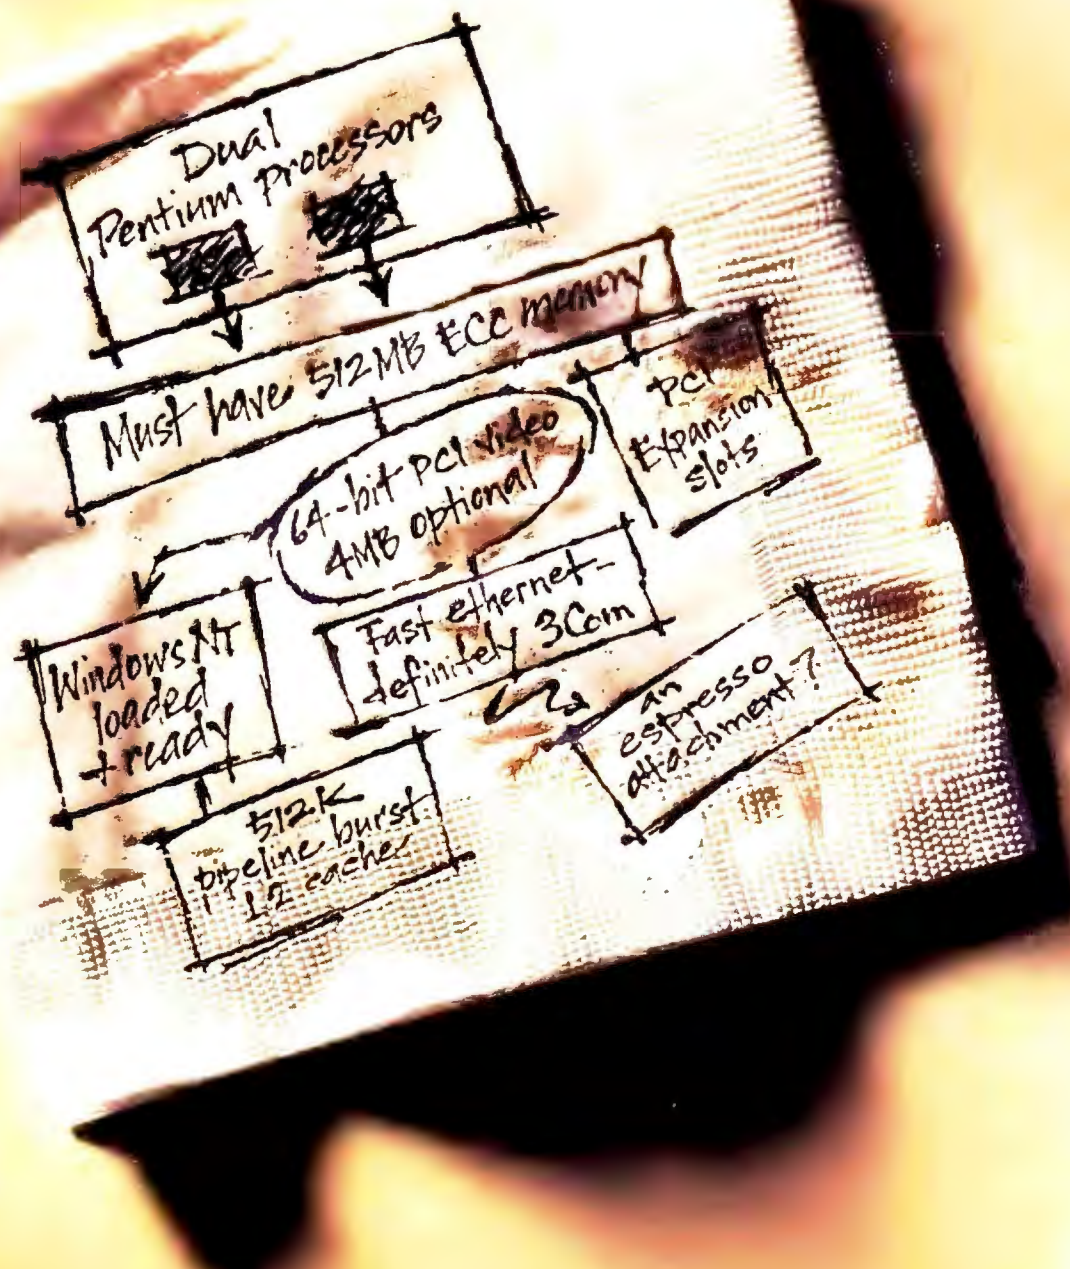 Dual
Pentium Processors
Must have 512MB ECC memory
PCI
Expansion
Slots
64-bit PCI video
4MB optional
Windows NT
loaded
+ ready
Fast ethernet-
definitely 3Com
an
espresso
attachment?
512K
pipeline burst
L2 cache